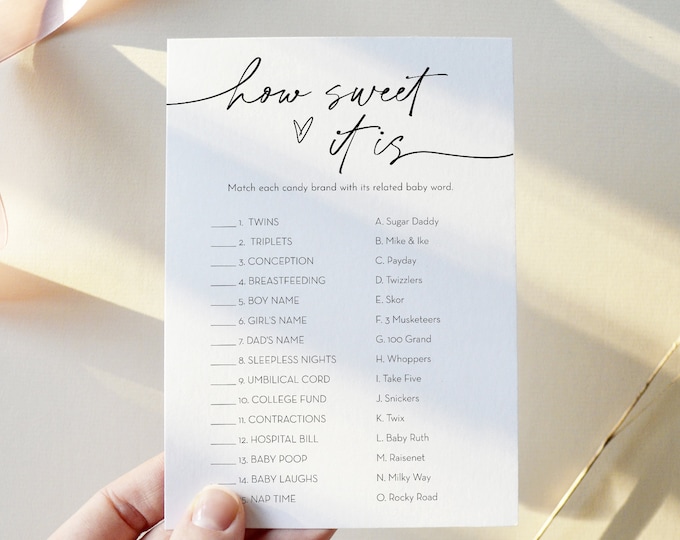 how sweet
it is
Match each candy brand with its related baby word.
1. TWINS A. Sugar Daddy
2. TRIPLETS B. Mike & Ike
3. CONCEPTION C. Payday
4. BREASTFEEDING D. Twizzlers
5. BOY NAME E. Skor
6. GIRL'S NAME F. 3 Musketeers
7. DAD'S NAME G. 100 Grand
8. SLEEPLESS NIGHTS H. Whoppers
9. UMBILICAL CORD I. Take Five
10. COLLEGE FUND J. Snickers
11. CONTRACTIONS K. Twix
12. HOSPITAL BILL L. Baby Ruth
13. BABY POOP M. Raisenet
14. BABY LAUGHS N. Milky Way
5. NAP TIME O. Rocky Road